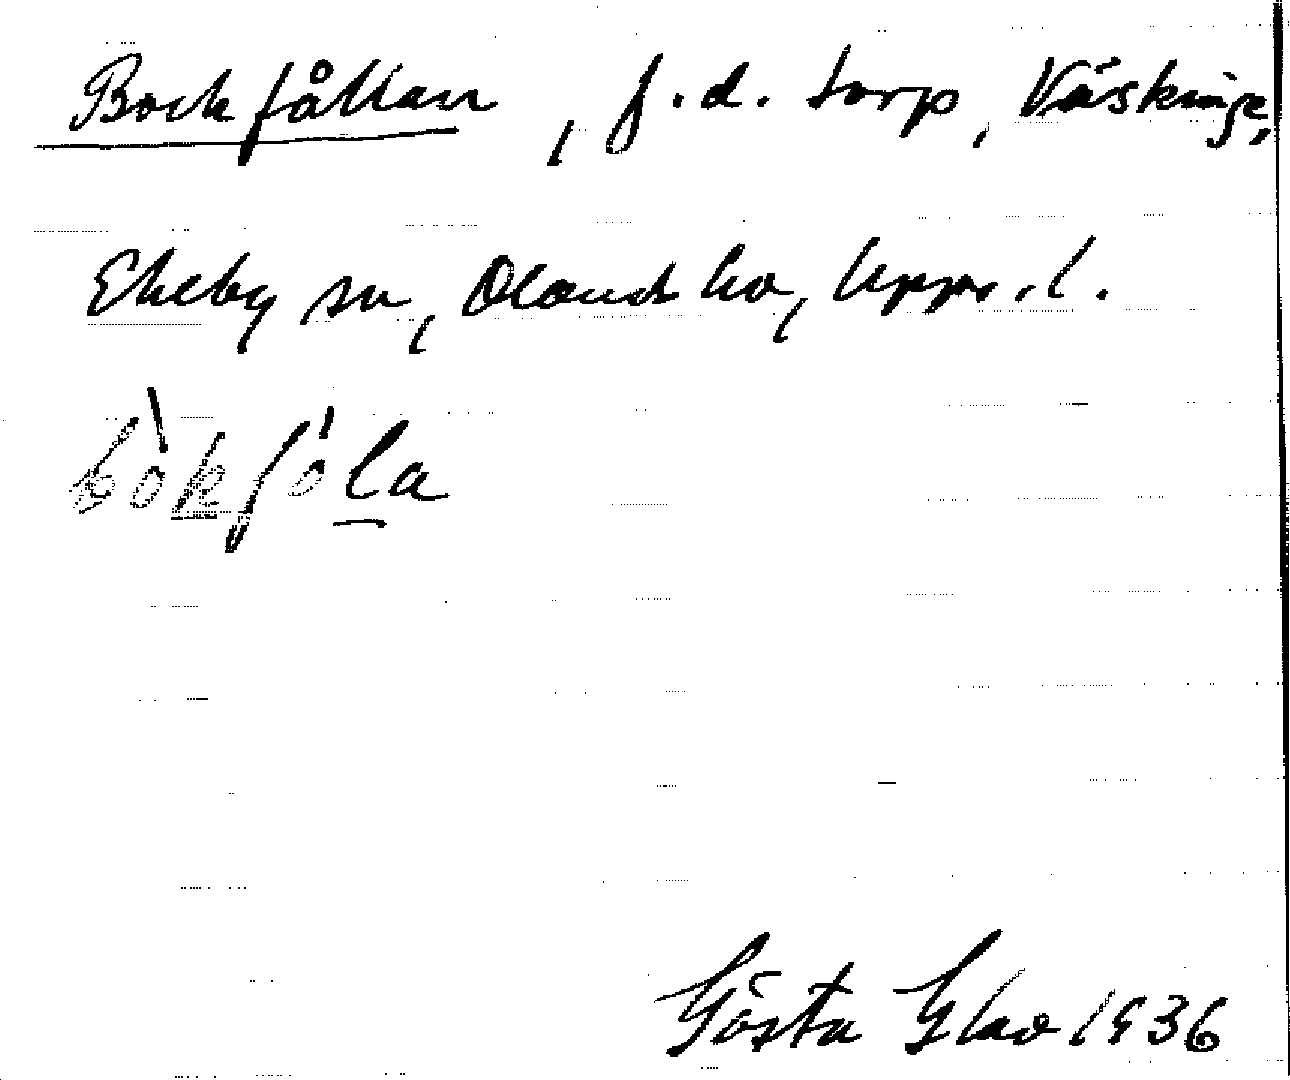 Bockfållan, f.d. torp, Väskinge,
Ekeby sn, Olands hd, Upps. l.
bòkfóla
Gösta Glad 1936